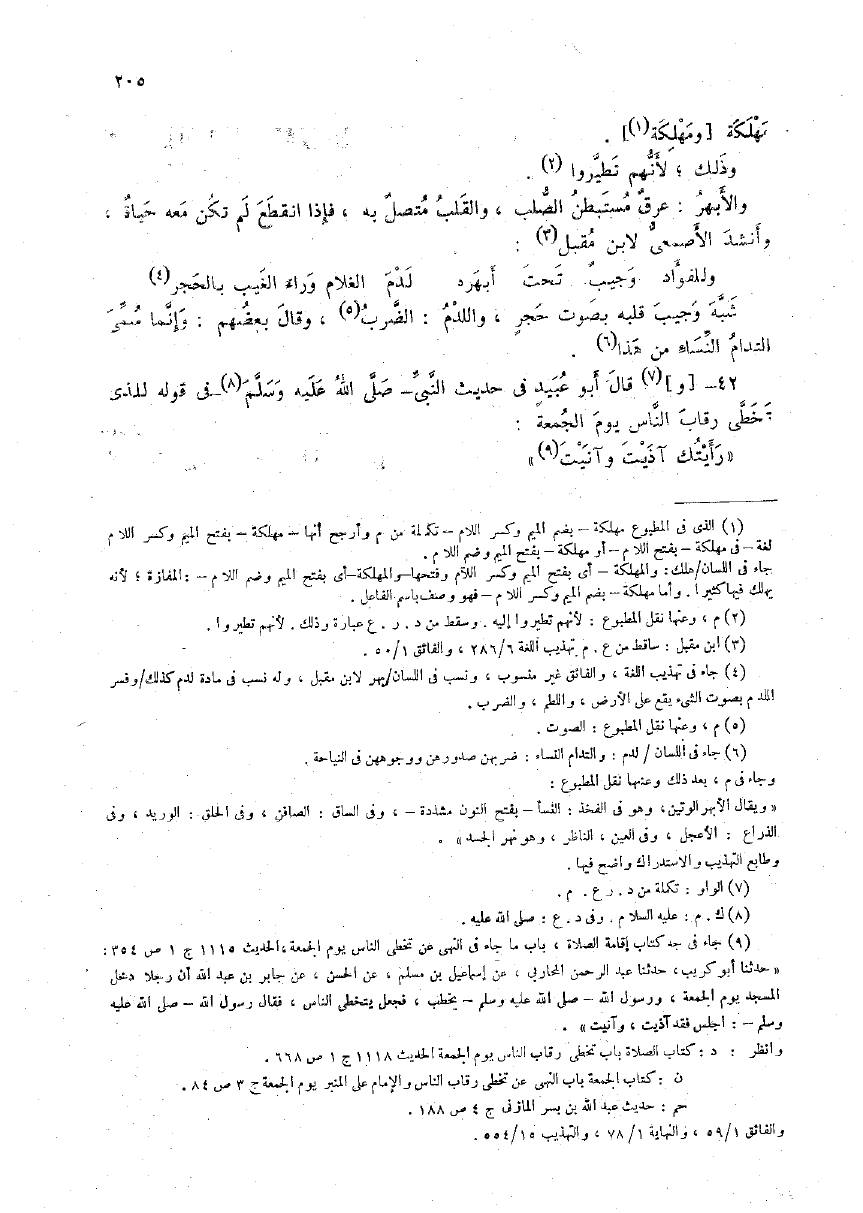 ٢٠٥
مَهْلَكَة [ومَهْلِكَة(١)] .
وذَلك ؛ لأَنَّهم تَطيَّروا (٢) .
والأَبهرُ : عرقٌ مُستَبطنُ الصُّلب ، والقَلبُ مُتصلٌ به ، فإذا انقطَعَ لَم تكُن مَعه حَياةٌ ،
وأَنشدَ الأَصمعىُّ لابن مُقبل(٣) :
وللفؤَاد وَجيبٌ تَحتَ أَبهَره لَدْمَ الغلام وَراءَ الغَيب بالحَجر(٤)
شَبَّهَ وَجيبَ قلبه بصَوت حَجرٍ ، واللدْمُ : الضَّربُ(٥) ، وقالَ بعضُهم : وَإنَّما سُمِّىَ
التدامُ النِّسَاءِ من هَذا(٦) .
٤٢– [و](٧) قالَ أَبو عُبَيدٍ فى حديث النَّبىِّ– صَلَّى اللهُ عَلَيه وَسَلَّمَ(٨)–فى قوله للذى
تَخَطَّى رقابَ النَّاس يومَ الجُمعة :
«رَأَيْتُك آذَيْتَ وآنَيْتَ(٩)»
(١) الذى فى المطبوع مهلكة – بضم الميم وكسر اللام – تكملة من م وأرجح أنها – مهلكة – بفتح الميم وكسر اللام
لغة – فى مهلكة – بفتح اللام – أو مهلكة – بفتح الميم وضم اللام .
جاء فى اللسان/هلك : والمهلكة – أى بفتح الميم وكسر اللام وفتحها–والمهلكة–أى بفتح الميم وضم اللام – : المفازة ؛ لأنه
يهلك فيها كثيرا . وأما مهلكة – بضم الميم وكسر اللام – فهو وصف باسم الفاعل .
(٢) م ، وعنها نقل المطبوع : لأنهم تطيروا إليه . وسقط من د . ر . ع عبارة وذلك . لأنهم تطيروا .
(٣) ابن مقبل : ساقط من ع . م تهذيب اللغة ٢٨٦/٦ ، والفائق ٥٠/١ .
(٤) جاء فى تهذيب اللغة ، والفائق غير منسوب ، ونسب فى اللسان/بهر لابن مقبل ، وله نسب فى مادة لدم كذلك/وفسر
اللدم بصوت الشىء يقع على الأرض ، واللطم ، والضرب .
(٥) م ، وعنها نقل المطبوع : الصوت .
(٦) جاء فى اللسان / لدم : والتدام النساء : ضربهن صدورهن ووجوههن فى النياحة .
وجاء فى م ، بعد ذلك وعنها نقل المطبوع :
«ويقال الأبهر الوتين، وهو فى الفخذ : النسأ – بفتح النون مشددة – ، وفى الساق : الصافن ، وفى الحلق : الوريد ، وفى
الذراع : الأعجل ، وفى العين ، الناظر ، وهو نهر الجسد» .
وطابع التهذيب والاستدراك واضح فيها .
(٧) الواو : تكملة من د . ر ع . م .
(٨) ك . م : عليه السلام . وفى د . ع : صلى الله عليه .
(٩) جاء فى جه كتاب إقامة الصلاة ، باب ما جاء فى النهى عن تخطى الناس يوم الجمعة،الحديث ١١١٥ ج ١ ص ٣٥٤ :
«حدثنا أبو كريب، حدثنا عبد الرحمن المحاربى ، عن إسماعيل بن مسلم ، عن الحسن ، عن جابر بن عبد الله أن رجلا دخل
المسجد يوم الجمعة ، ورسول الله – صلى الله عليه وسلم – يخطب ، فجعل يتخطى الناس ، فقال رسول الله – صلى الله عليه
وسلم – : اجلس فقد آذيت ، وآنيت» .
وانظر : د : كتاب الصلاة باب تخطى رقاب الناس يوم الجمعة الحديث ١١١٨ ج ١ ص ٦٦٨ .
ن : كتاب الجمعة باب النهى عن تخطى رقاب الناس والإمام على المنبر يوم الجمعة ج ٣ ص ٨٤ .
حم : حديث عبد الله بن بسر المازنى ج ٤ ص ١٨٨ .
والفائق ٥٩/١ ، والنهاية ٧٨/١ ، والتهذيب ٥٥٤/١٥ .